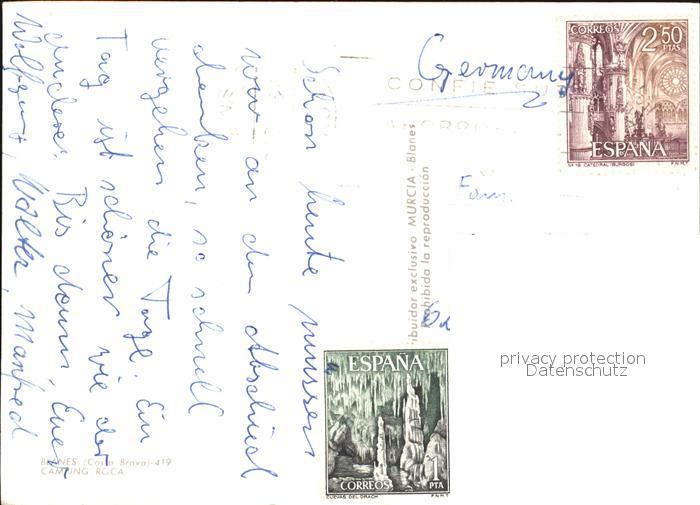 Schon heute müssen
wir an den Abschied
denken, so schnell
vergehen die Tage. Ein
Tag ist schöner wie der
andere. Bis dann, Euer
Wolfgang, Walter, Manfred
Germany
Fam.
CONFIE SU
CORREOS
2 50
PTAS
ESPAÑA
CATEDRAL (BURGOS)
F.N.M.T.
ibuidor exclusivo MURCIA - Blanes
Prohibida la reproducción
ESPAÑA
CORREOS
1
PTA
CUEVAS DEL DRACH
F.N.M.T.
privacy protection
Datenschutz
BLANES (Costa Brava)-419
CAMPING ROCA